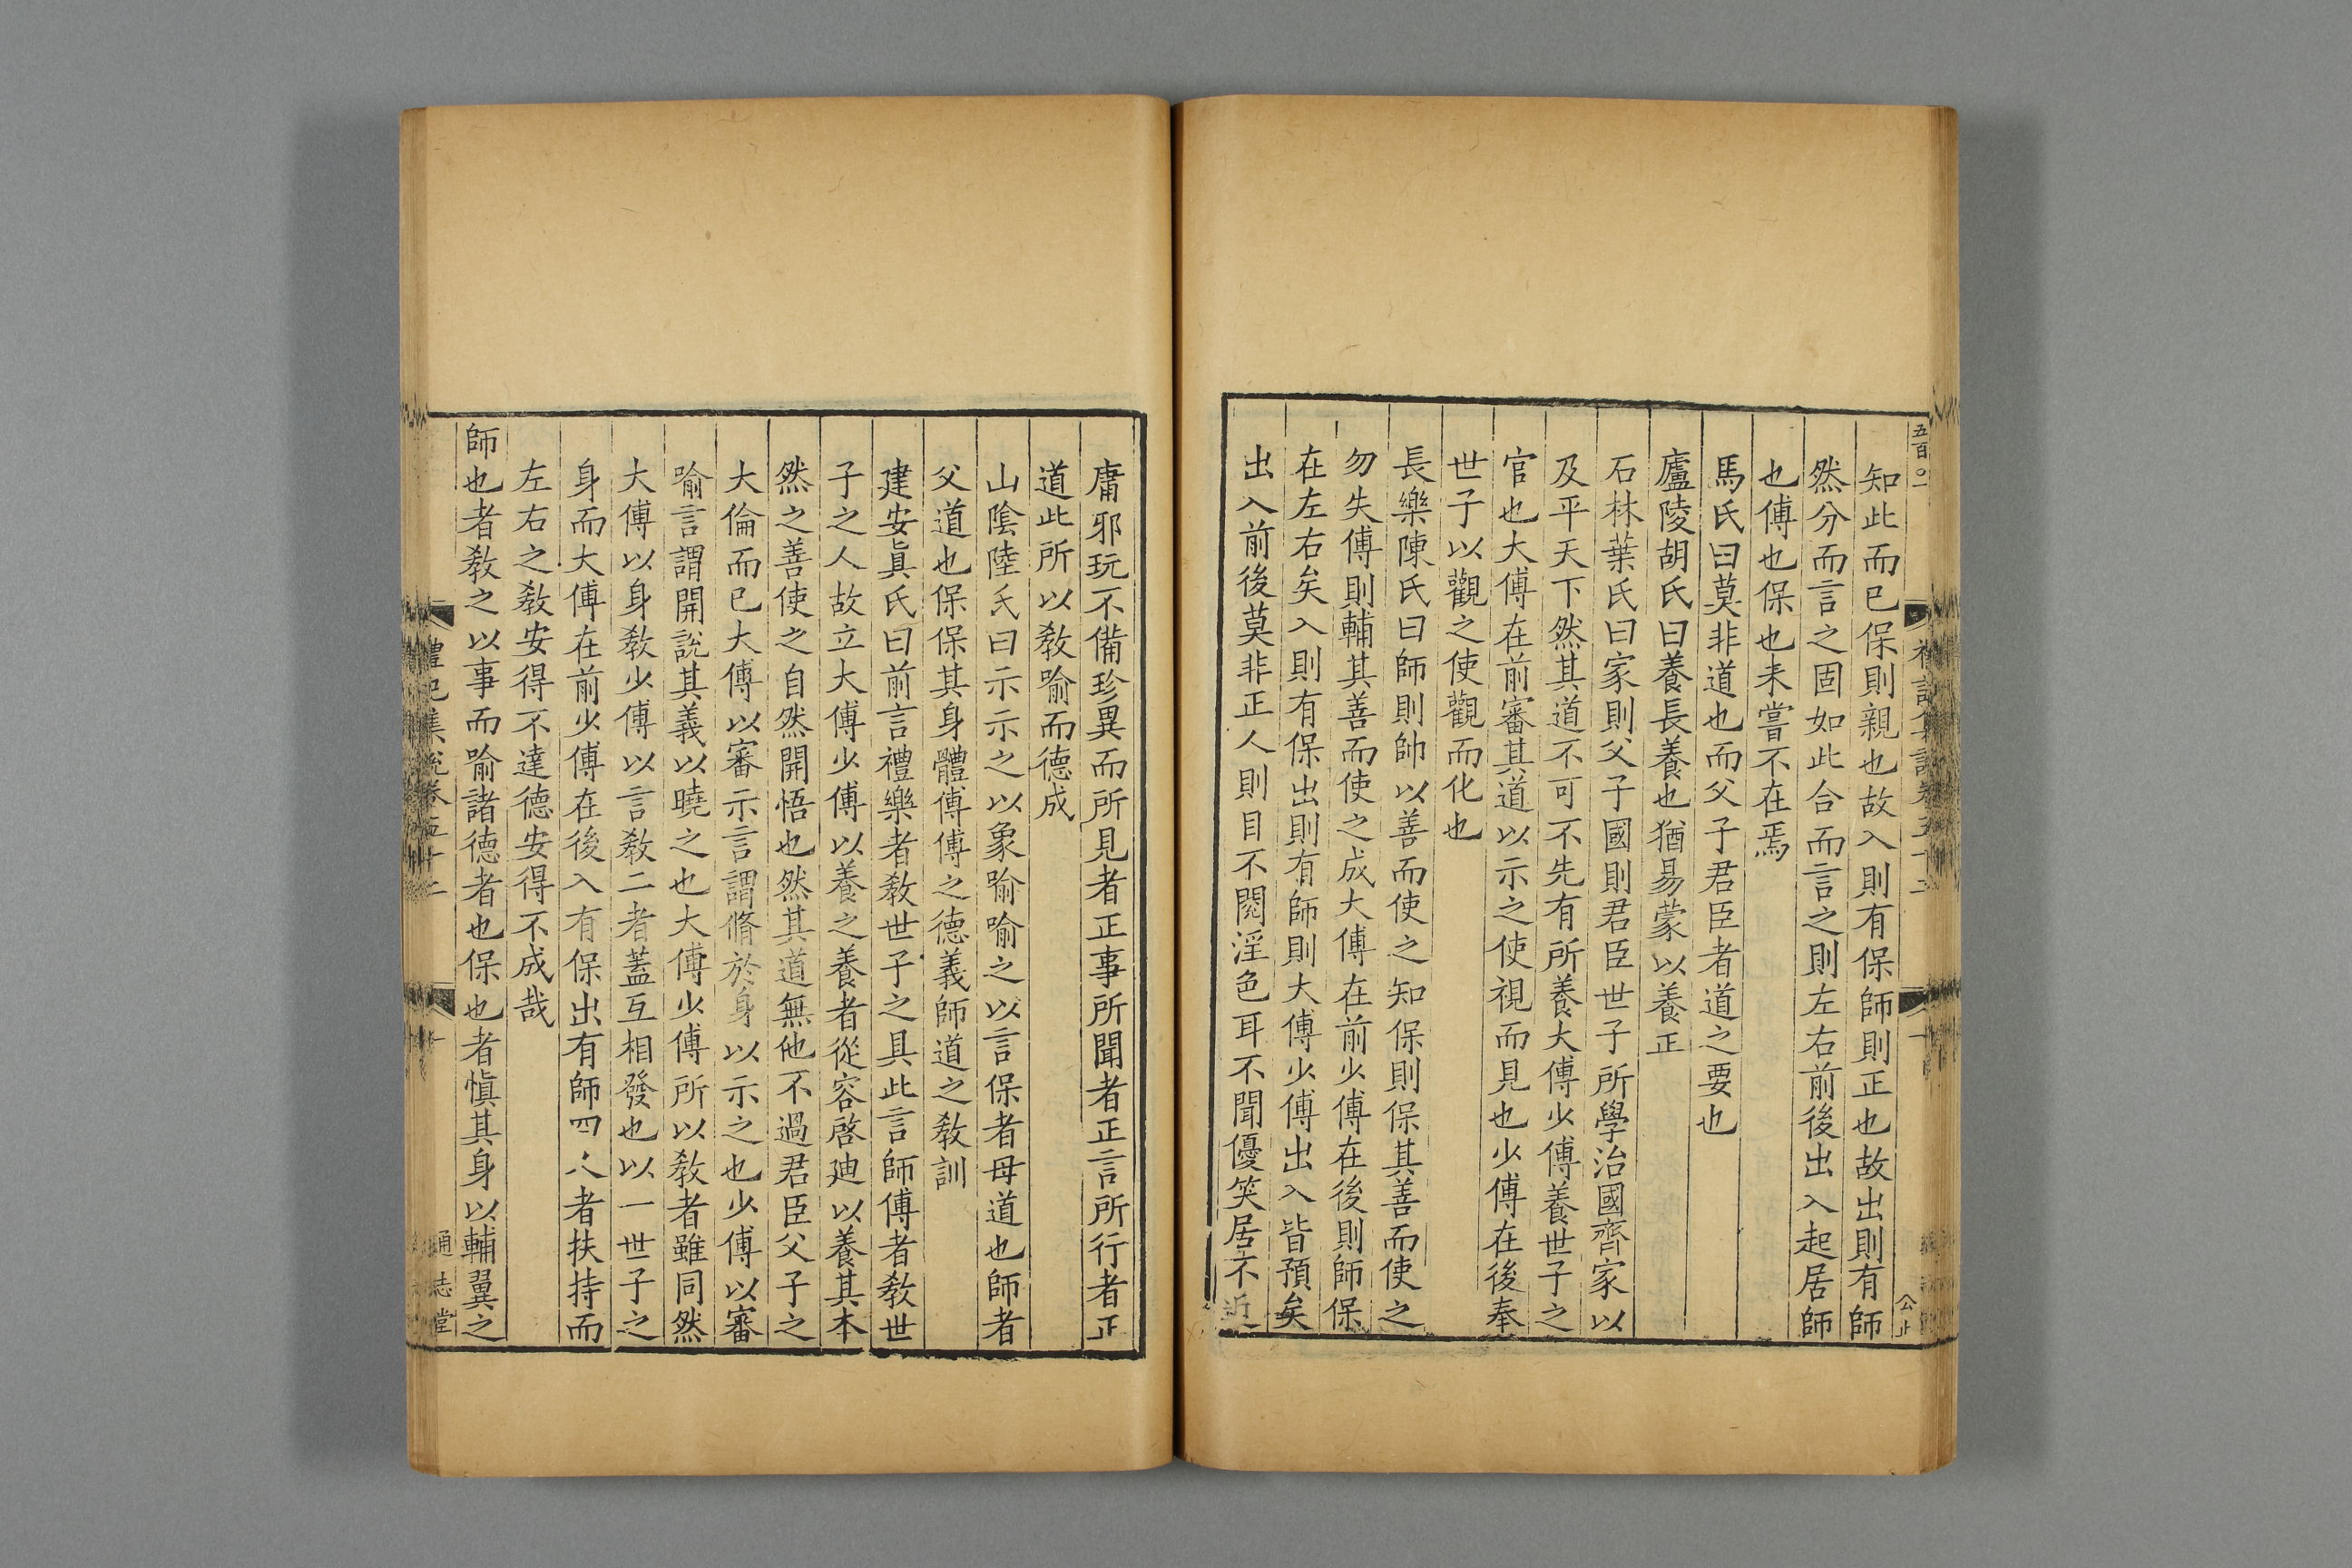 知此而已保則親也故入則有保師則正也故出則有師
然分而言之固如此合而言之則左右前後出入起居師
也傅也保也未嘗不在焉
馬氏曰莫非道也而父子君臣者道之要也
廬陵胡氏曰養長養也猶易蒙以養正
石林葉氏曰家則父子國則君臣世子所學治國齊家以
及平天下然其道不可不先有所養大傅少傅養世子之
官也大傅在前審其道以示之使視而見也少傅在後奉
世子以觀之使觀而化也
長樂陳氏曰師則帥以善而使之知保則保其善而使之
勿失傅則輔其善而使之成大傅在前少傅在後則師保
在左右矣入則有保出則有師則大傅少傅出入皆預矣
出入前後莫非正人則目不閱淫色耳不聞優笑居不近
庸邪玩不備珍異而所見者正事所聞者正言所行者正
道此所以敎喻而德成
山隂陸氏曰示示之以象喻喻之以言保者母道也師者
父道也保保其身體傅傅之德義師道之敎訓
建安眞氏曰前言禮樂者敎世子之具此言師傅者敎世
子之人故立大傅少傅以養之養者從容啓廸以養其本
然之善使之自然開悟也然其道無他不過君臣父子之
大倫而已大傅以審示言謂脩於身以示之也少傅以審
喻言謂開說其義以曉之也大傅少傅所以敎者雖同然
大傅以身敎少傅以言敎二者蓋互相發也以一世子之
身而大傅在前少傅在後入有保出有師四人者扶持而
左右之敎安得不達德安得不成哉
師也者敎之以事而喻諸德者也保也者愼其身以輔翼之
禮記集說卷五十二
通志堂